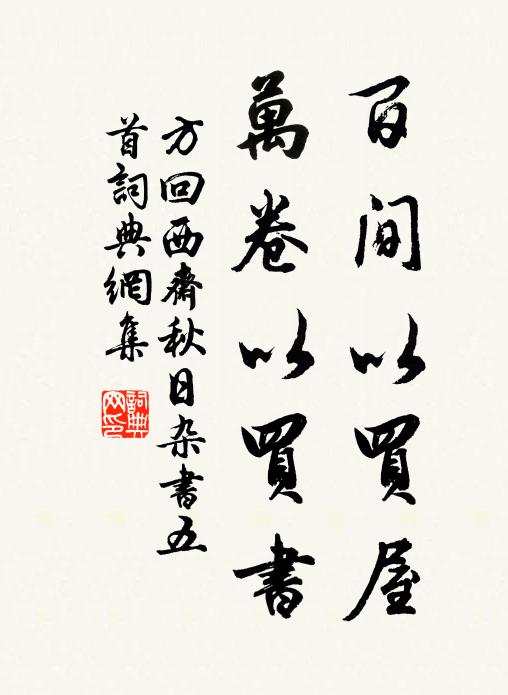 百间以買屋
萬卷以買書
方回西齋秋日杂書五
首詞典網集
詞典
网印